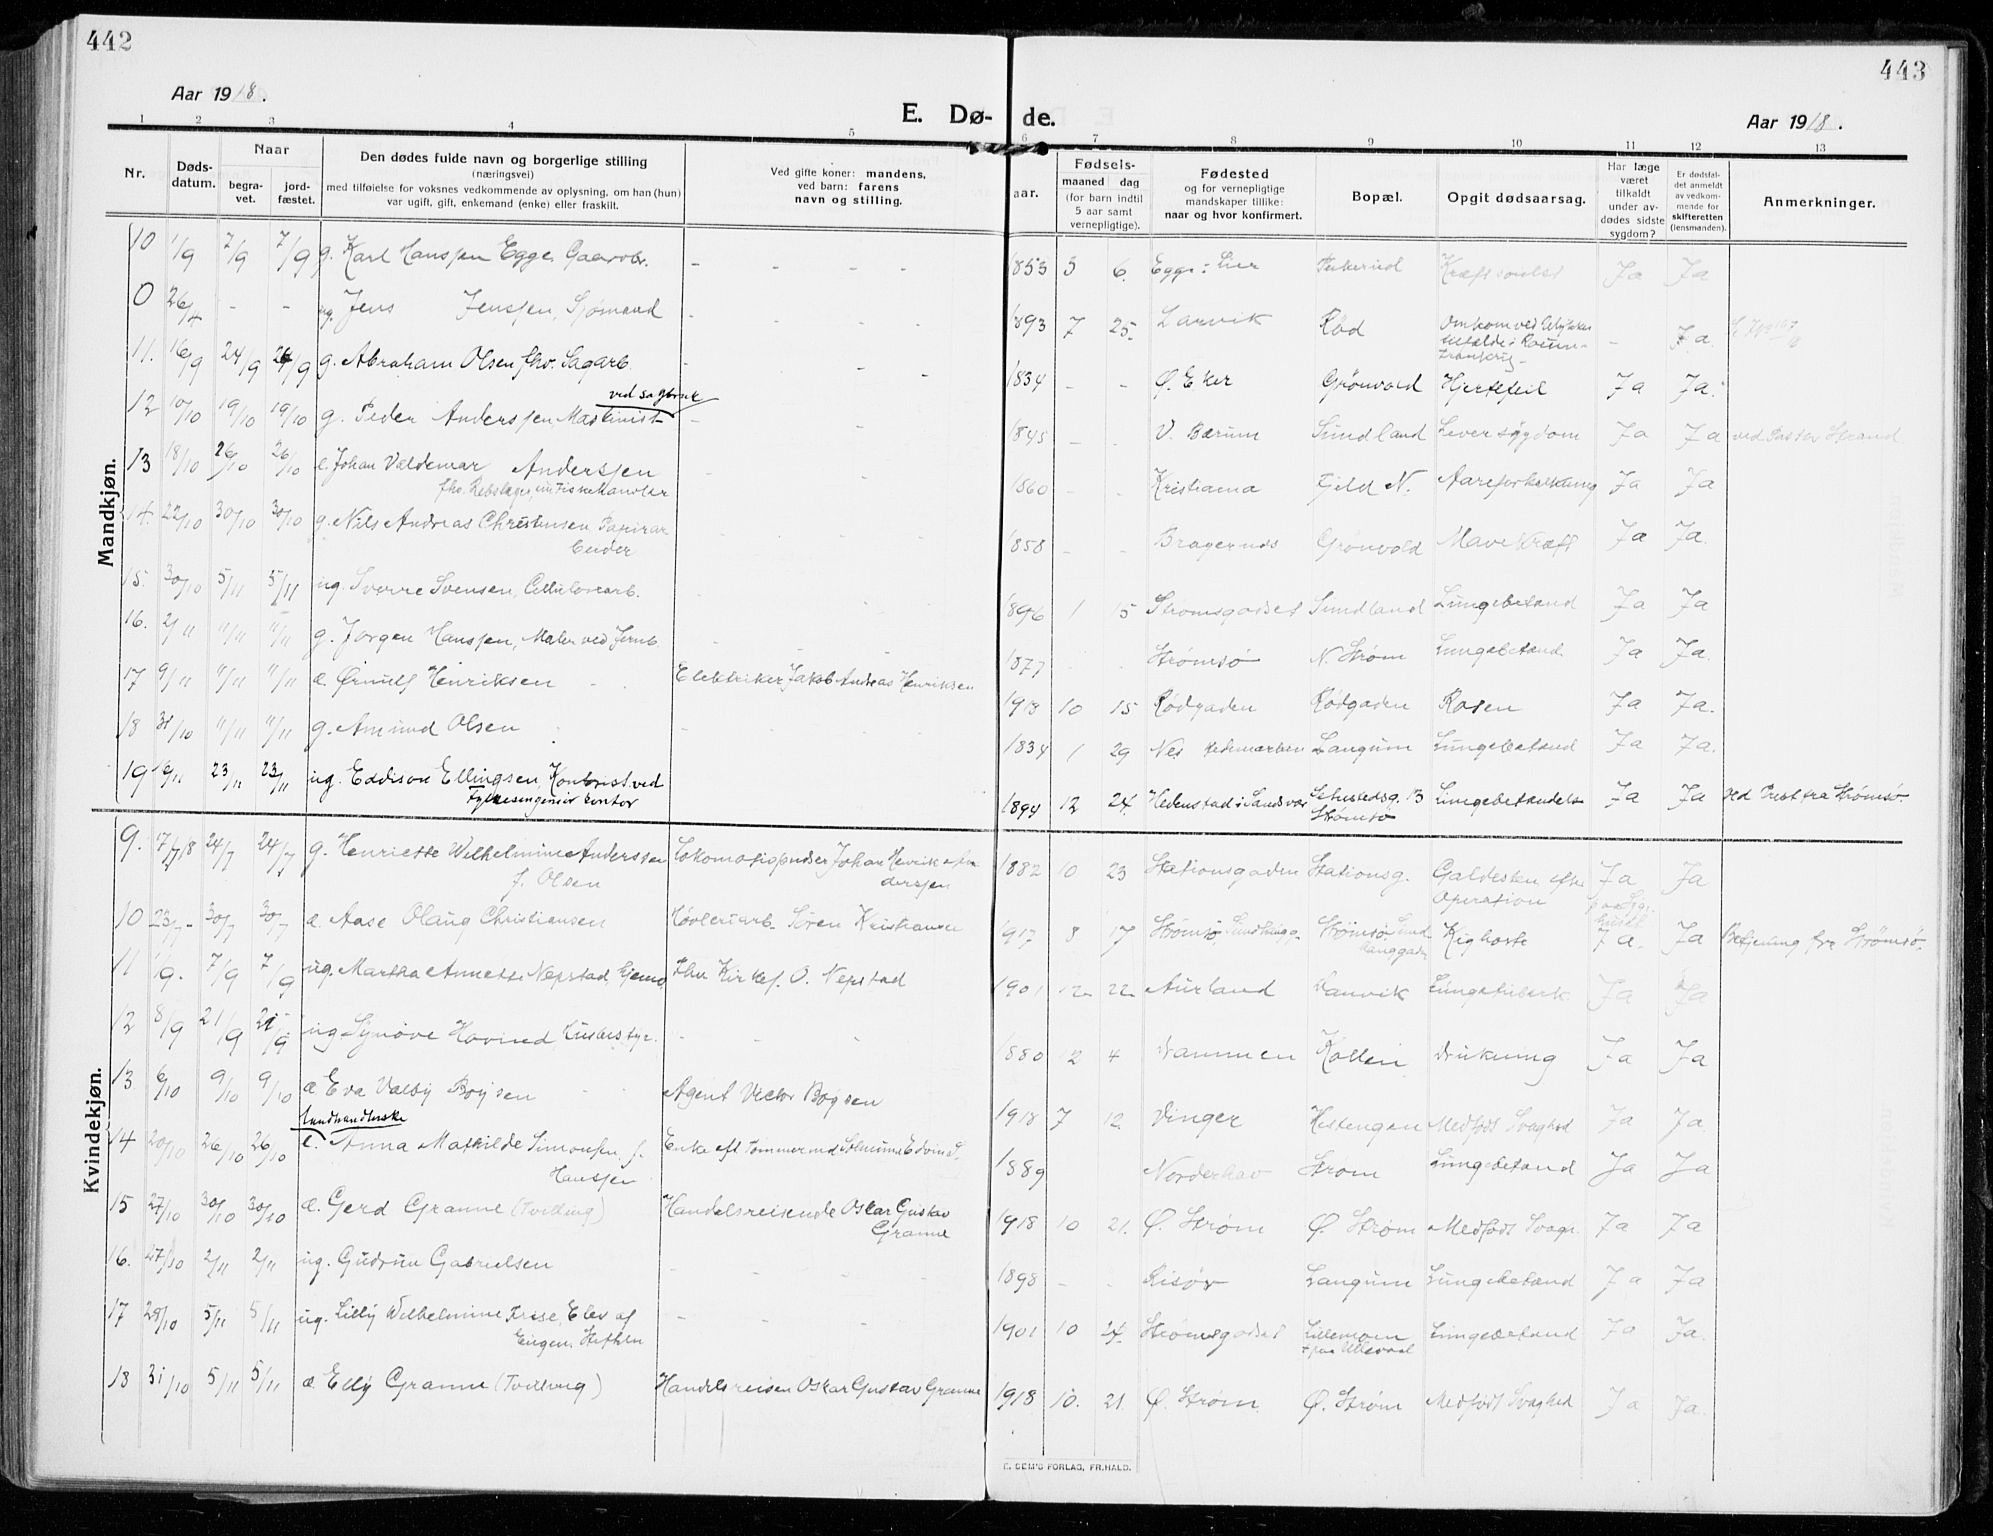 442
443
Aar 1918.
E. Døde.
Aar 1918.
1 2 3 4 5 6 7 8 9 10 11 12 13
Nr.
Døds-
datum.
Naar
begra-
vet.
jord-
fæstet.
Den dødes fulde navn og borgerlige stilling
(næringsvei)
med tilføielse for voksnes vedkommende av oplysning, om han (hun)
var ugift, gift, enkemand (enke) eller fraskilt.
Ved gifte koner: mandens,
ved barn: farens
navn og stilling.
aar.
Fødsels-
maaned dag
(for barn indtil
5 aar samt
vernepligtige).
Fødested
og for vernepligtige
mandskaper tillike:
naar og hvor konfirmert.
Bopæl.
Opgit dødsaarsag.
Har læge
været
tilkaldt
under av-
dødes sidste
sygdom?
Er dødsfal-
det anmeldt
av vedkom-
mende for
skifteretten
(lensmanden).
Anmerkninger.
Mandkjøn.
10 1/9 7/9 7/9 g. Karl Hanssen Egge, Gaardbr. - - - - 1853 5 6. Egge i Lier Kræftsvulst Ja Ja
0 26/4 - - ug. Jens Jenssen, Sjømand - - - 1893 7 25 Larvik Rød Omkom ved Ulykkes
tilfælde i - Ja
11. 16/9 24/9 24/9 g. Abraham Olsen fhv. Sagarb. - - - 1834 - - Ø. Eker Grønvold Hjertefeil Ja Ja.
ved sagbruk
12 10/10 19/10 19/10 g. Peder Anderssen, Maskinist - - 1845 - - V. Bærum Sundland Leversygdom Ja Ja ved Pastor Strand
13 18/10 26/10 26/10 e. Johan Valdemar Anderssen
fhv. Rebslager, nu Fiskehandler 1860 - - Kristiania Fjeld N. Aareforkalkning Ja Ja
14. 22/10 30/10 30/10 g. Nils Andreas Christensen, Papirar
beider 1858 - - Bragernes Grønvold Mavekræft Ja Ja.
15. 30/10 5/11 5/11 ug. Sverre Svensen, Cellulosearb. 1896 1 15 Strømsgodset Sundland Lungebetænd Ja Ja
16. 2/11 11/11 11/11 g. Jørgen Hanssen, Maler ved Jernb 1877 Strømsø N. Strøm Lungebetænd Ja Ja.
17 9/11 11/11 11/11 æ. Ørnulf Henriksen Elektriker Jakob Andreas Henriksen 1918 10 15 Rødgaden Rødgaden Rosen Ja Ja.
18 31/10 11/11 11/11 g. Amund Olsen 1834 1 29 Nes Hedemarken Langum Lungebetænd Ja Ja.
19 16/11 23/11 23/11 ug. Eddison Ellingsen, Kontorist ved
Fylkesingeniør kontor 1894 12 24. Hedenstad i Sandsvær Sehestedsg. 13
Strømsø Lungebetændels Ja Ja Ved Prest fra Strømsø.
Kvindekjøn.
9. 17/7 18 24/7 24/7 g. Henriette Wilhelmine Anderssen
f. Olsen Lokomotivpudser Johan Henrik An
derssen 1882 10 23 Stationsgaden Stationsg. Galdesten efter
Operation Ja Ja
10 23/7 30/7 30/7 æ. Aase Olaug Christiansen Høvleriarb. Søren Kristiansen 917 8 17 Strømsø Strømsø Kighoste Ja. Ja fra Strømsø.
11 1/9. 7/9 7/9 ug. Martha Annette Nepstad, hjemv. Fhv Kirkes. O. Nepstad 1901 12 22 Aurland Danvik Lungetuberk. Ja Ja
12 8/9 21/9 21/9 ug Synøve Hovind, Husbestyr. - - - 1880 12 4 Drammen Kollen Drukning Ja Ja
13 6/10 9/10 9/10 æ Eva Valby Boysen Agent Victor Boysen 1918 7 12. Vinger Hestengen Medfødt Svaghed Ja Ja.
14 20/10 26/10 26/10 e. Anna Mathilde Simonsen, f.
Hanssen Enke eft Tømmermd 1889 Norderhov Strøm Lungebetænd Ja Ja
15 27/10 30/10 30/10 æ. Gerd Granne (Tvilling) Handelsreisende Oskar Gustav
Granne 1918 10 21. Ø. Strøm Ø. Strøm Medfødt Svagh. Ja Ja
16. 27/10 2/11 2/11 ug. Gudrun Gabrielsen - - - 1898 - - Risør Langum Lungebetænd Ja Ja
17 29/10 5/11 5/11 ug. Lilly Wilhelmine Friese, Elev af
Eugen. Stiftelsen - - - 1901 10 24. Strømsgodset Lillemoen
+ paa Ullevaal Lungebetænd Ja Ja.
18 31/10 5/11 5/11 æ Elly Granne (Tvilling) Handelsreisen Oskar Gustav Granne 1918 10. 21. Ø. Strøm Ø. Strøm Medfødt Svaghed Ja Ja.
E. SEM'S FORLAG, FR.HALD.